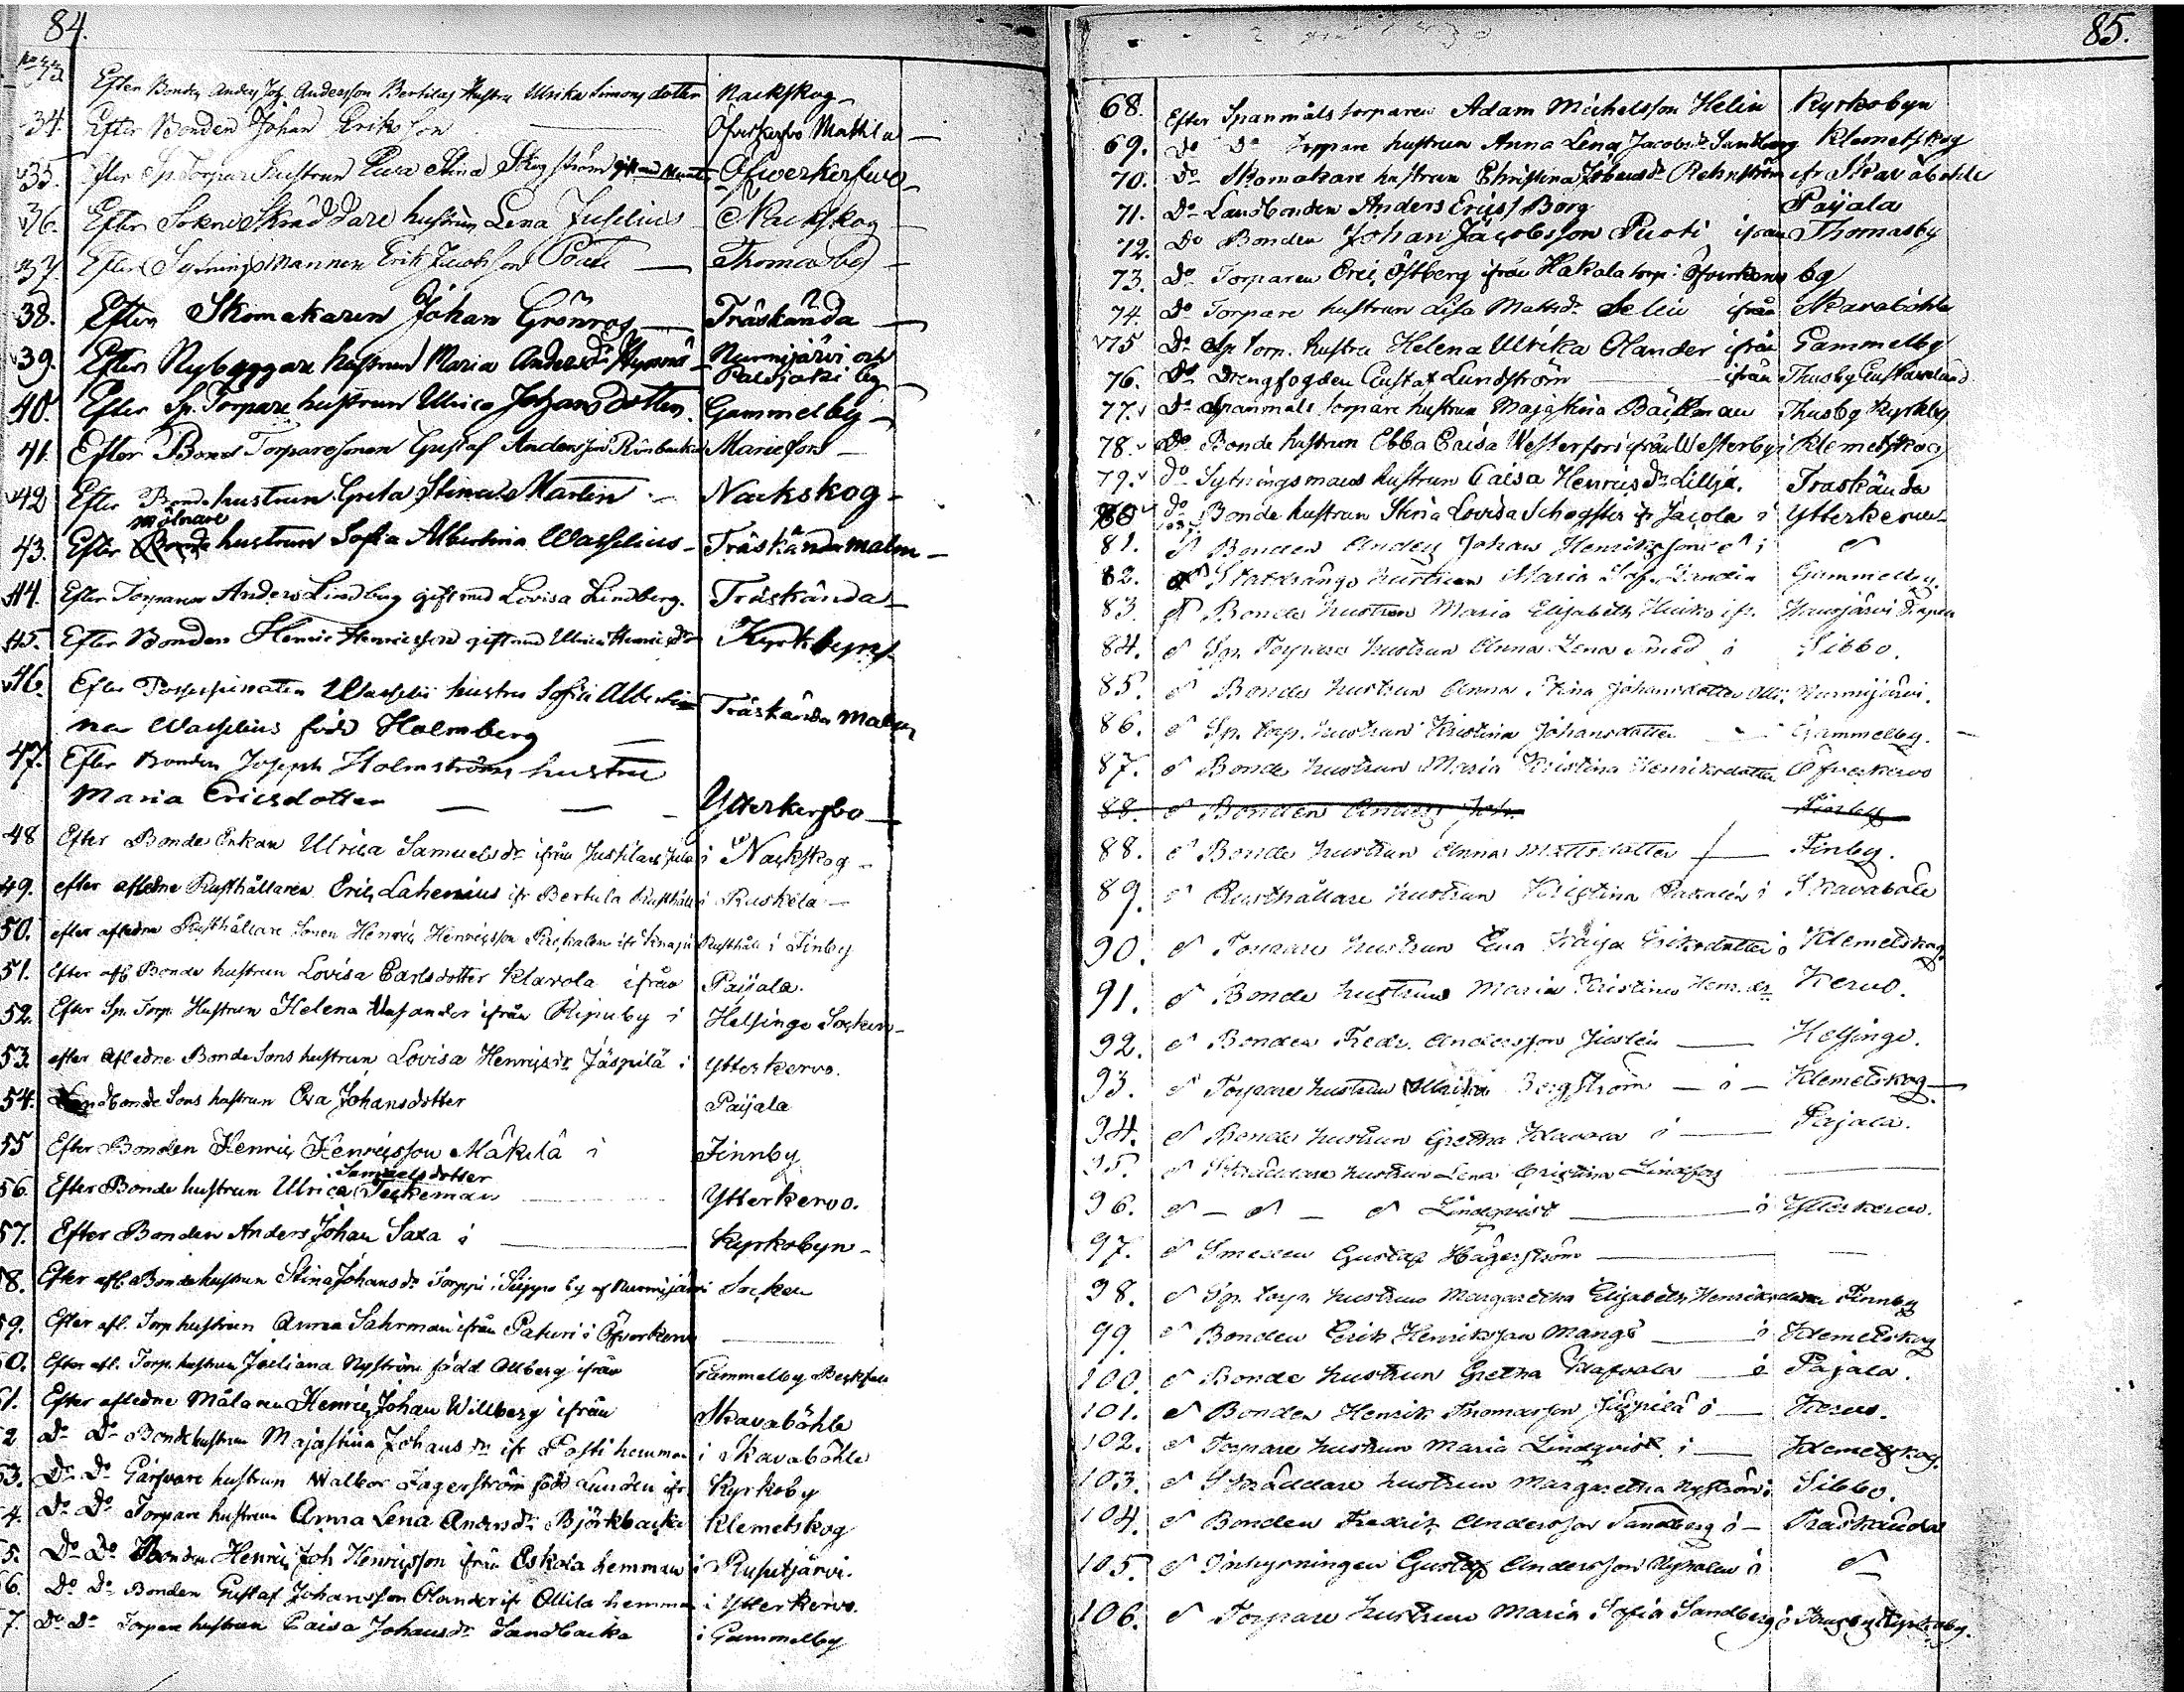 84.
No 33. Efter Bonden Anders Joh. Andersson Bertilas Hustru Ulrika Simons dotter Nackskog
34. Efter Bonden Johan Eriksson — Mattila —
35. Efter Sp. Torpare Hustrun Ewa Stina Skogström Öfwerkerfwo
36. Efter Sokne Skräddare hustrun Lena Juselius Nackskog
37. Efter Sytnings Mannen Erik Jacobsson Thomasby
38. Efter Skomakaren Johan Grönros — Träskända —
39. Efter Nybyggare hustrun Maria Andersdr Nurmijärvi och
Palojoki by
40. Efter Sp. Torpare hustrun Ulrica Johansdotter Gammelby
41. Efter Bonde Torparesonen Gustaf Andersson Mariefors —
42 Efter Bonde hustrun Greta Stina Martin — Nackskog -
Mölnare
43. Efter Bonde hustrun Sofia Albertina Wasselius - Träskända malm -
44. Efter Torparen Anders Lindberg gift med Lovisa Lindberg. Träskända
45. Efter Bonden Henric Henricsson gift med Ulrica Henricsdr Kyrkbyn
46. Efter Wasselii hustru Sofia Alberti=
na Wasselius född Holmberg Träskända Malm
47. Efter Bonden Joseph Holmströms hustru
Maria Ericsdotter — — Ytterkerfvo —
48 Efter Bonde Enkan Ulrica Samuelsdr ifrån Jussilas i Nackskog -
49. efter afledne Rusthållaren Eric Lahenius ifr Bertula Rusthåll i Ruskela —
50. efter afledne Rusthållare Sonen Henric Henricsson ifr Rusthåll i Finby
51. Efter afl. Bonde hustrun Lovisa Carlsdotter Klavola ifrån Paijala.
52. Efter Sp. Torp. Hustrun Helena ifrån Ripuby i Helsinge Socken -
53. efter Afledne Bonde Sons hustrun Lovisa Henricsdr Jäspilä i Ytterkervo.
54. Landbonde Sons hustrun Eva Johansdotter Paijala
55 Efter Bonden Henric Henricsson Mäkilä i Finnby
Samuelsdotter
56. Efter Bonde hustrun Ulrica Teckeman Ytterkervo.
57. Efter Bonden Anders Johan Saxa i — Kyrkobyn -
58. Efter afl. Bonde hustrun Stina Johansdr Torppi i by af Nurmijärvi Socken
59. Efter afl. Torp hustrun Anna Sahrman ifrån Paturi i Öfverkervo —
60. Efter afl. Torp. hustrun Juliana Nyström född Allberg ifrån Gammelby
61. Efter afledne Målaren Henric Johan Willberg ifrån Skavaböhle
62 Do Do Bondehustrun Majastina Johansdr ifr Posti hemman i Skavaböhle
63. Do Do Garfvare hustrun Walbor Fagerström född Lunden ifr Kyrkoby
64. Do Do Torpare hustrun Anna Lena Andersdr Björkbacka Klemetskog
65. Do Do Bonden Henric Joh Henricsson ifrån Eskola hemman i Rusutjärvi.
66. Do Do Bonden Gustaf Johansson Olander ifr Ollila hemman i Ytterkervo.
67. Do Do Torpare hustrun Caisa Johansdr Sandbacka i Gammelby
85.
68. Efter Spanmåls torparen Adam Michelsson Helin Kyrkobyn
69. Do Do Torpare hustrun Anna Lena Jacobsdr Sandberg Klemetskog
70. Do Skomakare hustrun Christina Johansdr Rehnström ifr Skavaböhle
71. Do Landbonden Anders Ericss Borg Paijala
72. Do Bonden Johan Jacobsson Puoti ifrån Thomasby
73. Do Torparen Eric Östberg ifrån Hakala torp i Öfverkervo by
74 Do Torpare hustrun Lisa Mattsdr Selin ifrån Skavaböhle
75 Do Sp. torp. hustru Helena Ulrika Olander ifrån Gammelby
76. Do Drengfogden Gustaf Lundström — ifrån Thusby Gustavelund
77. Do Spanmåls torpare hustrun Majastina Bäckman Thusby Kyrkby
78. Do Bonde hustrun Ebba Caisa Westerfors ifrån Westerby i Klemetskog
79. Do Sytningsmans hustrun Caisa Henricsdr Lillja. Träskända
80 Do Bonde hustrun Stina Lovisa ifr Jacola i Ytterkervo
81. d Bonden Anders Johan Henriksson d i d
82. d Statdrängs hustrun Maria Sof. Gammelby.
83. d Bonde hustrun Maria Elisabeth ifr. Hausjärvi
84. d Sp. Torpare hustrun Anna Lena Smed i Sibbo.
85. d Bonde hustrun Anna Stina Johansdotter Nurmijärvi.
86. d Sp. torp. hustrun Kristina Johansdotter — Gammelby. —
87. d Bonde hustrun Maria Kristina Henriksdotter Öfverkervo
88. d Bonden Anders Joh. Finby
88. d Bonde hustrun Anna Mattsdotter — Finby.
89. d Rusthållare hustrun Kristina i Skavaböle
90. d Torpare hustrun Eva Kaija Eriksdotter i Klemetskog
91. d Bonde hustrun Maria Kristina Henr. dr Kervo.
92. d Bonden Fredr. Andersson — Helsinge.
93. d Torpare hustrun Ulrika Bergström — i — Klemetskog —
94. d Bonde hustrun Gretha Klavola i — Pajala.
95. d Skräddare hustrun Lena Cristina Lindfors —
96. d — d — d Lindqvist — i Ytterkervo.
97. d Smeden Gustaf Hägerström — —
98. d Sp. torp. hustrun Margaretha Elisabeth Henriksdotter Finnby
99 d Bonden Erik Henriksson Mangs — i Klemetskog
100. d Bonde hustrun Gretha Klafvola — i Pajala.
101. d Bonden Henrik Thomasson Jäspilä i — Kervo.
102. d Torpare hustrun Maria Lindqvist i — Klemetskog.
103. d Skräddare hustrun Margaretha Nyström i Sibbo.
104. d Bonden Fredrik Andersson Sandberg i — Träskända
105. d Inhysningen Gustaf Andersson i d
106. d Torpare hustrun Maria Sofia Sandberg i Thusby Kyrkoby.